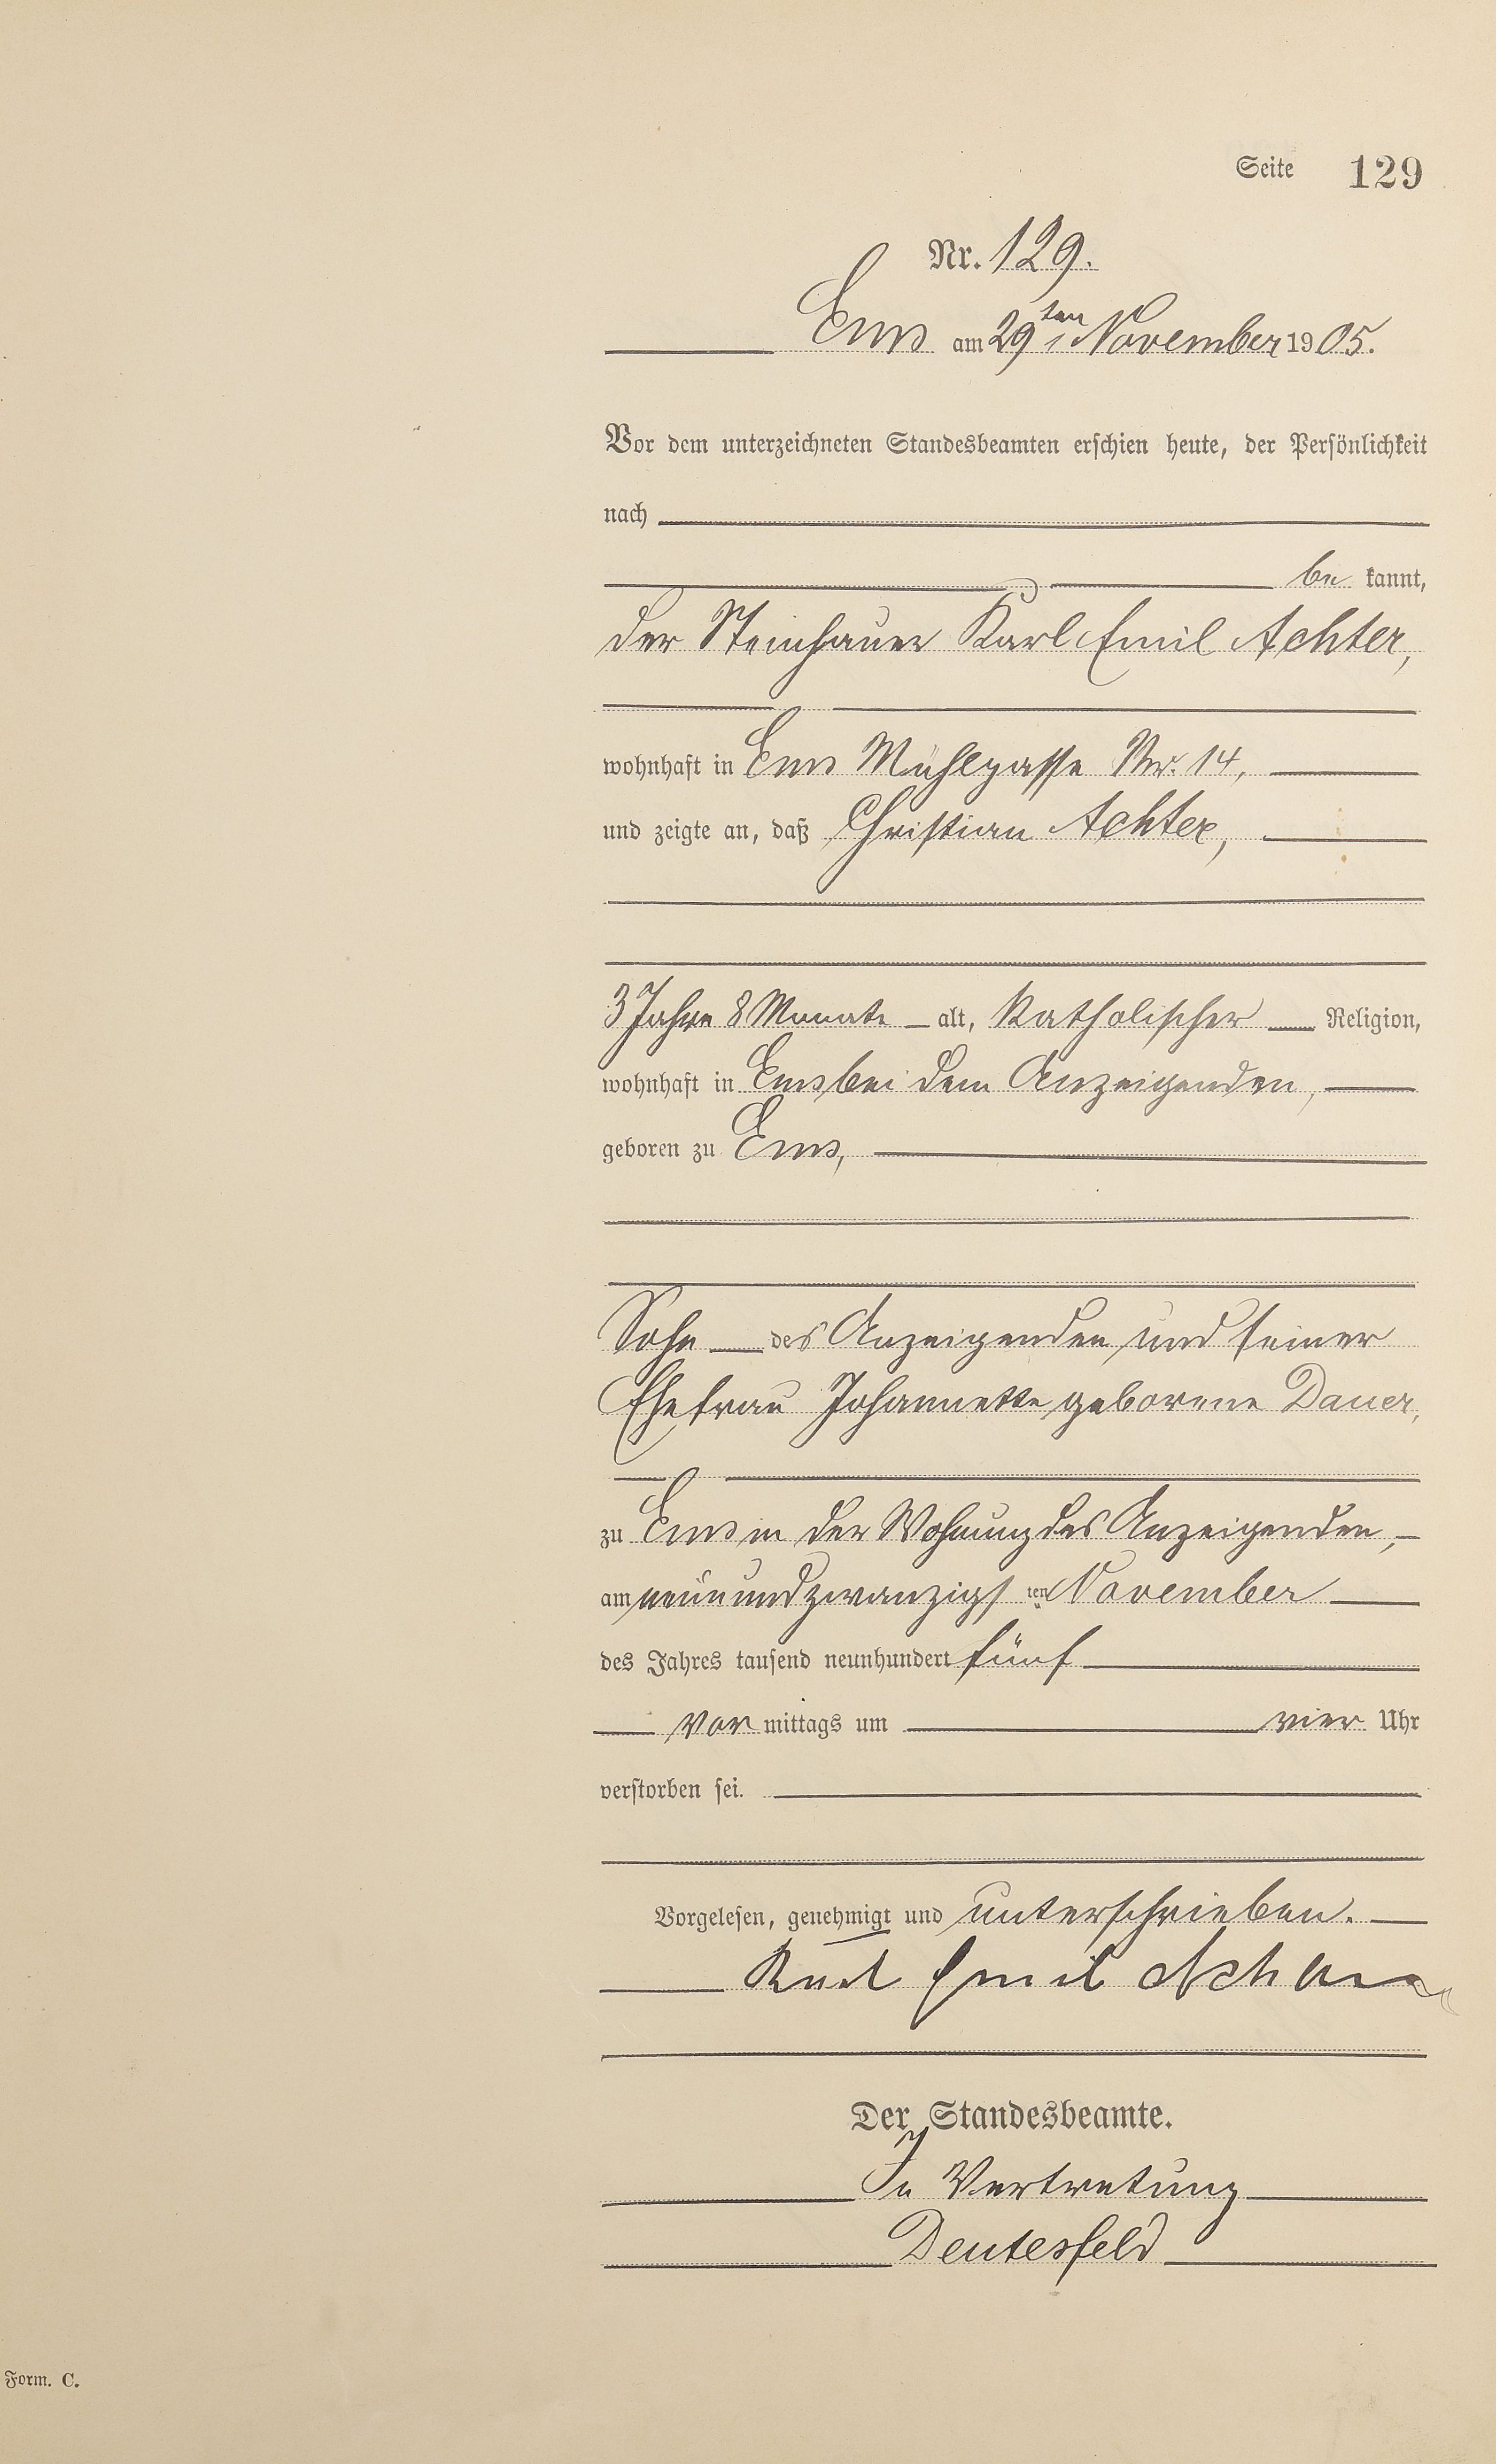 Seite 129
Nr. 129.
Ems am 29ten November 1905.
Vor dem unterzeichneten Standesbeamten erschien heute, der Persönlichkeit
nach
be kannt,
der Steinhauer Karl Emil Achter,
wohnhaft in Ems Mühlgasse Nr. 14,
und zeigte an, daß Christian Achter,
3 Jahre 8 Monate alt, katholischer Religion,
wohnhaft in Ems bei dem Anzeigenden,
geboren zu Ems,
Sohn des Anzeigenden und seiner
Ehefrau Johannette geborene Dauer,
zu Ems in der Wohnung des Anzeigenden,
am neunundzwanzigsten November
des Jahres tausend neunhundert fünf
vor mittags um vier Uhr
verstorben sei.
Vorgelesen, genehmigt und unterschrieben.
Karl Emil Achter
Der Standesbeamte.
In Vertretung
Deutesfeld
Form. C.